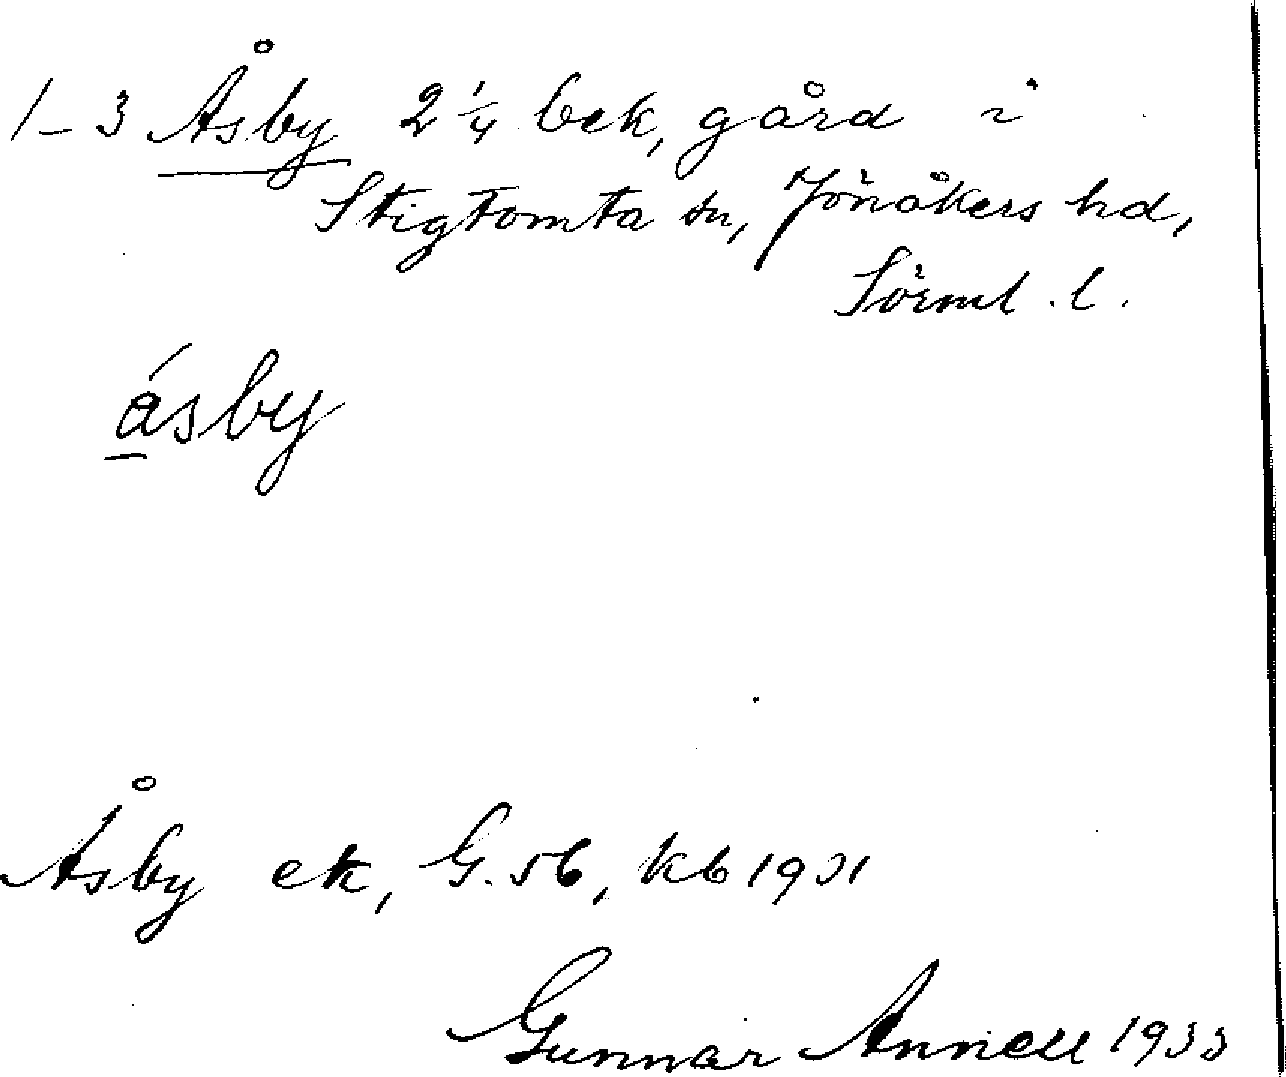 1-3 Åsby 2 1/4 bek, gård i
Stigtomta sn, Jönåkers hd,
Sörml. l.
ásby
Åsby ek, G. 5b, kb 1901
Gunnar Annell 1933